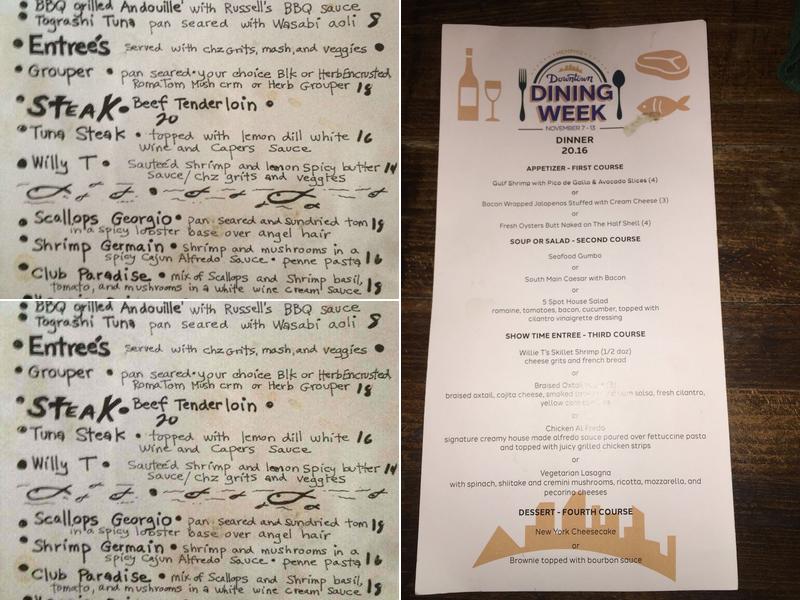 BBQ grilled Andouille' with Russell's BBQ sauce
Tograshi Tuna pan seared with Wasabi aoli 8
Entree's served with chz grits, mash, and veggies
Grouper • pan seared • your choice Blk or Herb Encrusted
Roma Tom Mush crm or Herb Grouper 18
STEAK • Beef Tenderloin •
20
Tuna Steak • topped with lemon dill white 16
Wine and Capers Sauce
Willy T • Sautee'd Shrimp and lemon spicy butter
sauce/chz grits and veggies
Scallops Georgio • pan seared and sundried tom 18
in a spicy lobster base over angel hair
Shrimp Germain • shrimp and mushrooms in a
spicy Cajun Alfredo' Sauce • penne pasta 16
Club Paradise • mix of Scallops and Shrimp basil,
tomato, and mushrooms in a white wine cream sauce 18
BBQ grilled Andouille' with Russell's BBQ sauce
Tograshi Tuna pan seared with Wasabi aoli 8
Entree's served with chz grits, mash, and veggies
Grouper • pan seared • your choice Blk or Herb Encrusted
Roma Tom Mush crm or Herb Grouper 18
STEAK • Beef Tenderloin •
20
Tuna Steak • topped with lemon dill white 16
Wine and Capers Sauce
Willy T • Sautee'd Shrimp and lemon spicy butter
sauce/chz grits and veggies
Scallops Georgio • pan seared and sundried tom 18
in a spicy lobster base over angel hair
Shrimp Germain • shrimp and mushrooms in a
spicy Cajun Alfredo' Sauce • penne pasta 16
Club Paradise • mix of Scallops and Shrimp basil,
tomato, and mushrooms in a white wine cream sauce 18
MEMPHIS
Downtown
DINING
WEEK
NOVEMBER 7 - 13
DINNER
20.16
APPETIZER - FIRST COURSE
Gulf Shrimp with Pico de Gallo & Avocado Slices (4)
or
Bacon Wrapped Jalapenos Stuffed with Cream Cheese (3)
or
Fresh Oysters Butt Naked on The Half Shell (4)
SOUP OR SALAD - SECOND COURSE
Seafood Gumbo
or
South Main Caesar with Bacon
or
5 Spot House Salad
romaine, tomatoes, bacon, cucumber, topped with
cilantro vinaigrette dressing
SHOW TIME ENTREE - THIRD COURSE
Willie T's Skillet Shrimp (1/2 doz)
cheese grits and french bread
or
Braised Oxtail
braised oxtail, cojita cheese, smoked salsa, fresh cilantro,
yellow corn
or
Chicken Al Fredo
signature creamy house made alfredo sauce poured over fettuccine pasta
and topped with juicy grilled chicken strips
or
Vegetarian Lasagna
with spinach, shiitake and cremini mushrooms, ricotta, mozzarella, and
pecorino cheeses
DESSERT - FOURTH COURSE
New York Cheesecake
or
Brownie topped with bourbon sauce